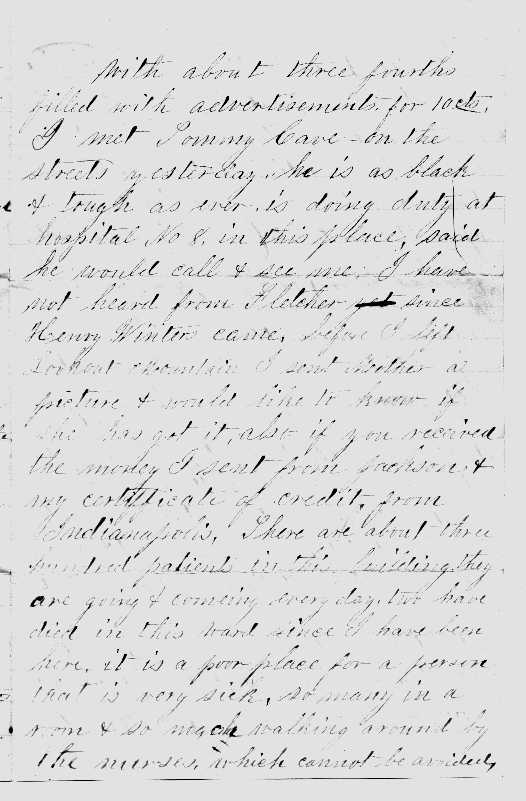 With about three fourths
filled with advertisements. for 10 cts.
I met Tommy Cave - on the
streets yesterday. he is as black
& tough as ever. is doing duty at
hospital No 8. in this place, said
he would call & see me. I have
not heard from Fletcher yet since
Henry Winters came, before I left
Lookout Mountain I sent Mother a
picture & would like to know if
she has got it, also if you received
the money I sent from Jackson, &
my certificate of credit, from
Indianapolis, There are about three
hundred patients in this building they
are going & comeing every day. two have
died in this ward since I have been
here. it is a poor place for a person
that is very sick, so many in a
room & so much walking around by
the nurses, which cannot be avoided,